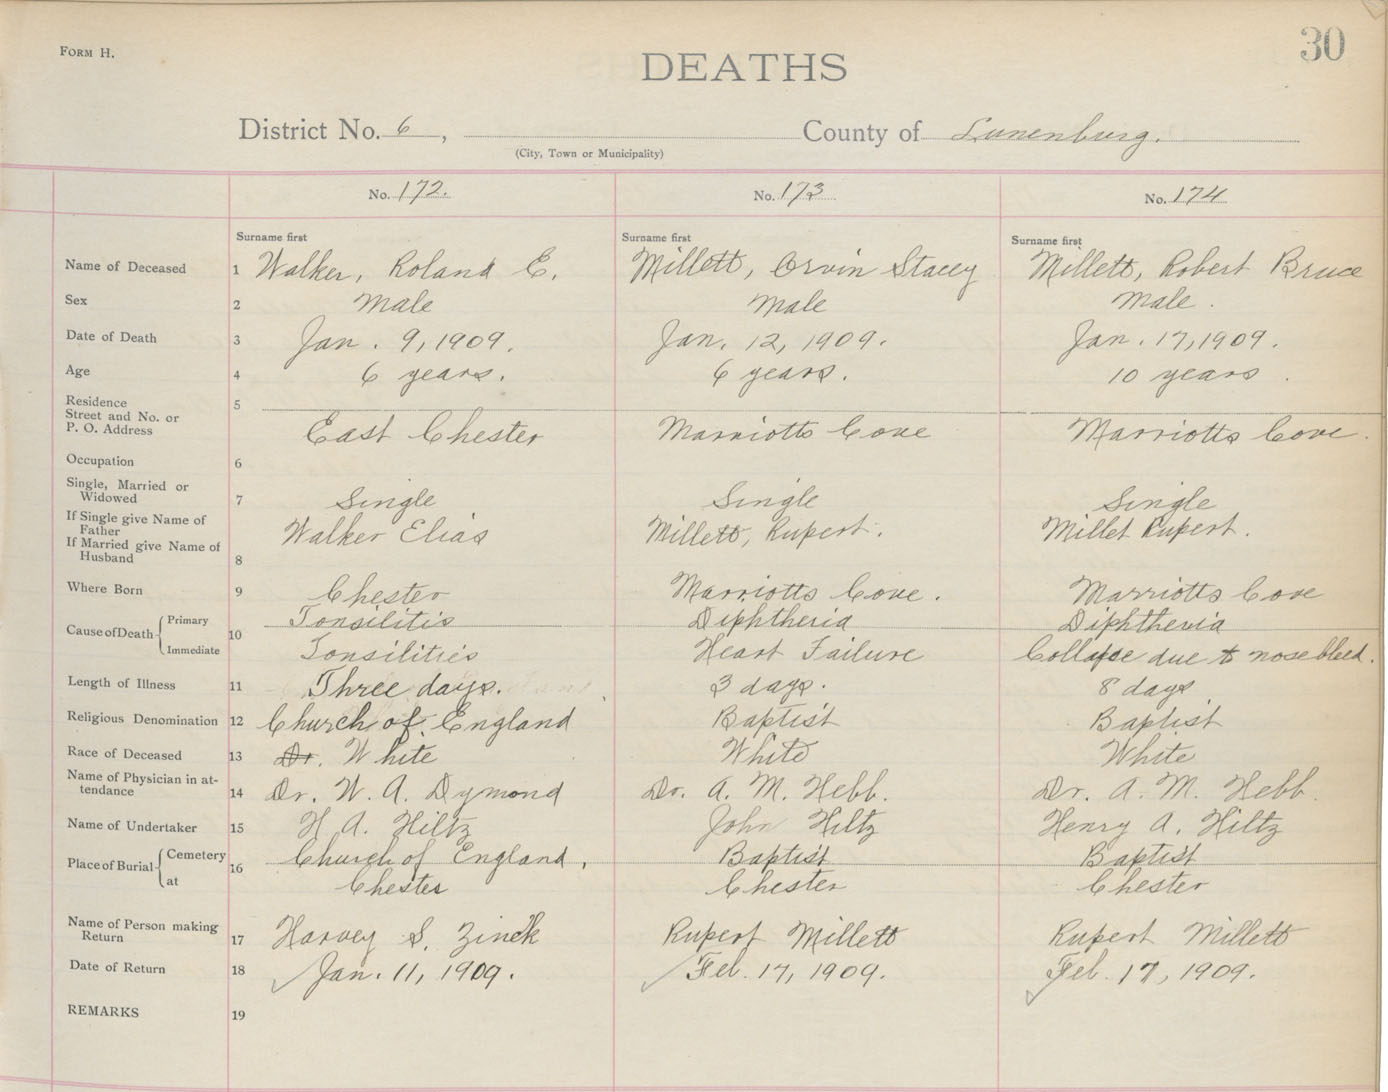 FORM H.
30
DEATHS
District No. 6, County of Lunenburg.
(City, Town or Municipality)
No. 172. No. 173 No. 174
Surname first Surname first Surname first
Name of Deceased 1 Walker, Roland E. Millett, Orvin Stacey Millett, Robert Bruce
Sex 2 Male Male Male.
Date of Death 3 Jan. 9, 1909. Jan. 12, 1909. Jan. 17, 1909.
Age 4 6 years. 6 years. 10 years.
Residence 5
Street and No. or
P. O. Address East Chester Marriotts Cove Marriotts Cove.
Occupation 6
Single, Married or
Widowed 7 Single Single Single
If Single give Name of
Father Walker Elias Millett, Rupert. Millet Rupert.
If Married give Name of
Husband 8
Where Born 9 Chester Marriotts Cove. Marriotts Cove
Cause of Death Primary 10 Tonsilitis Diphtheria Diphtheria
Immediate Tonsilities Heart Failure Collapse due to nose bleed.
Length of Illness 11 Three days. 3 days. 8 days
Religious Denomination 12 Church of England Baptist Baptist
Race of Deceased 13 Dr. White White White
Name of Physician in at-
tendance 14 Dr. W. A. Dymond Dr. A. M. Hebb. Dr. A. M. Hebb.
Name of Undertaker 15 H A. Hiltz John Hiltz Henry A. Hiltz
Place of Burial Cemetery 16 Church of England, Baptist Baptist
at Chester Chester Chester
Name of Person making
Return 17 Harvey S. Zinck Rupert Millett Rupert Millett
Date of Return 18 Jan. 11, 1909. Feb. 17, 1909. Feb. 17, 1909.
REMARKS 19